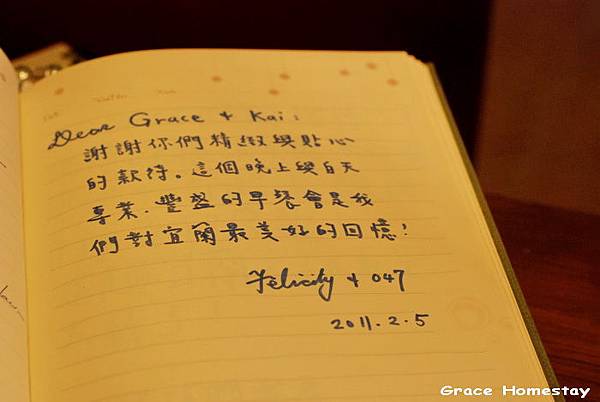 Dear Grace + Kai :
謝謝你們精緻與貼心
的款待。這個晚上與白天
專業、豐盛的早餐會是我
們對宜蘭最美好的回憶!
Felicity + 047
2011.2.5
Grace Homestay